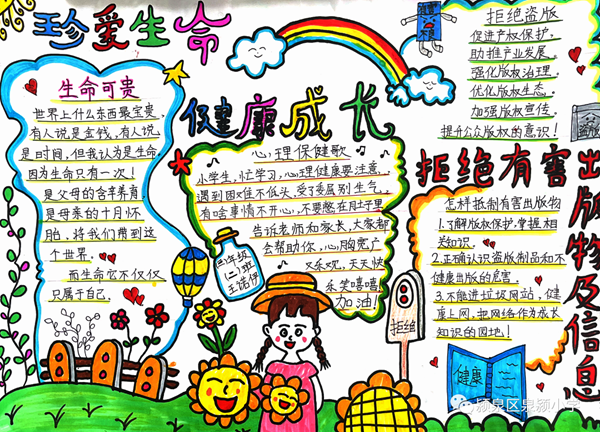 珍爱生命
健康成长
拒绝有害出版物及信息
生命可贵
世界上什么东西最宝贵,
有人说是金钱,有人说
是时间,但我认为是生命,
因为生命只有一次!
是父母的含辛养育,
是母亲的十月怀
胎,将我们带到这
个世界。
而生命它不仅仅
只属于自己。
心理保健歌
小学生,忙学习,心理健康要注意,
遇到困难不低头,受了委屈别生气。
有啥事情不开心,不要憋在肚子里
告诉老师和家长,大家都
会帮助你,心胸宽广
又乐观,天天快
乐笑嘻嘻,
加油!
(二)班
王诺伊
拒绝盗版
促进产权保护,
助推产业发展。
强化版权治理,
优化版权生态。
加强版权宣传,
提升公众版权的意识!
怎样抵制有害出版物
1.了解版权保护,掌握相
关知识。
2.正确认识盗版制品和不
健康出版的危害。
3.不能进垃圾网站,健
康上网,把网络作为成长
知识的园地!
拒绝
健康
颍泉区泉颍小学